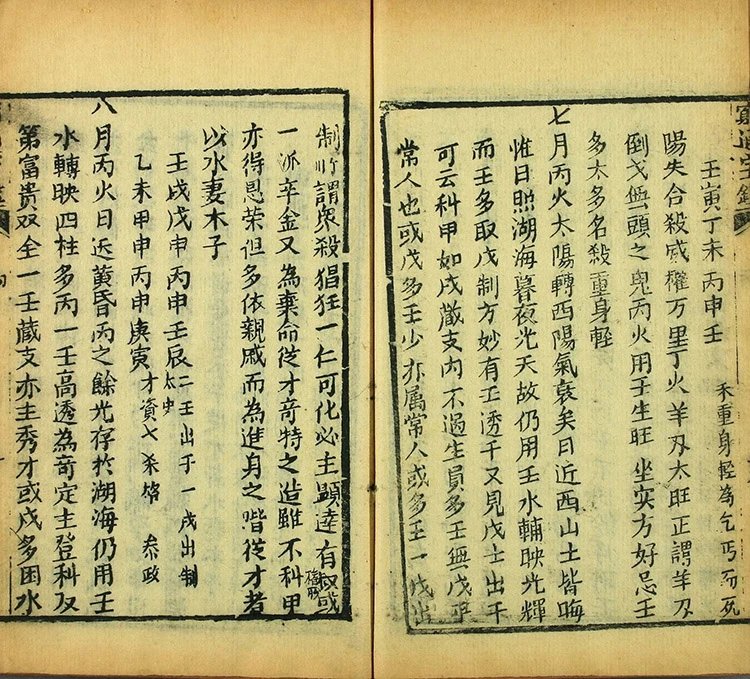 壬寅丁未丙申壬
殺重身輕為乞丐而死
陽失合殺威權万里丁火羊刃太旺正謂羊刃
倒戈無頭之鬼丙火用壬生旺坐実方好忌壬
多木多名殺重身輕
七月丙火太陽轉西陽氣衰矣日近西山土皆晦
惟日照湖海暮夜光天故仍用壬水輔映光輝
而壬多取戊制方妙有壬透干又見戊土出干
可云科甲如戊藏支內不過生員多壬無戊乎
常人也或戊多壬少亦属常人或多壬一戊出
制此謂眾殺猖狂一仁可化必主顕達有
一派辛金又為棄命從才奇特之造雖不科甲
亦得恩荣但多依親戚而為進身之階從才者
以水妻木子
壬戌戊申丙申壬辰二壬出于一戌出制
太史
乙未甲申丙申庚寅才資七杀格 叅政
八月丙火日近黄昏丙之餘光存於湖海仍用壬
水轉映四柱多丙一壬高透為奇定主登科及
第富贵双全一壬藏支亦主秀才或戊多困水